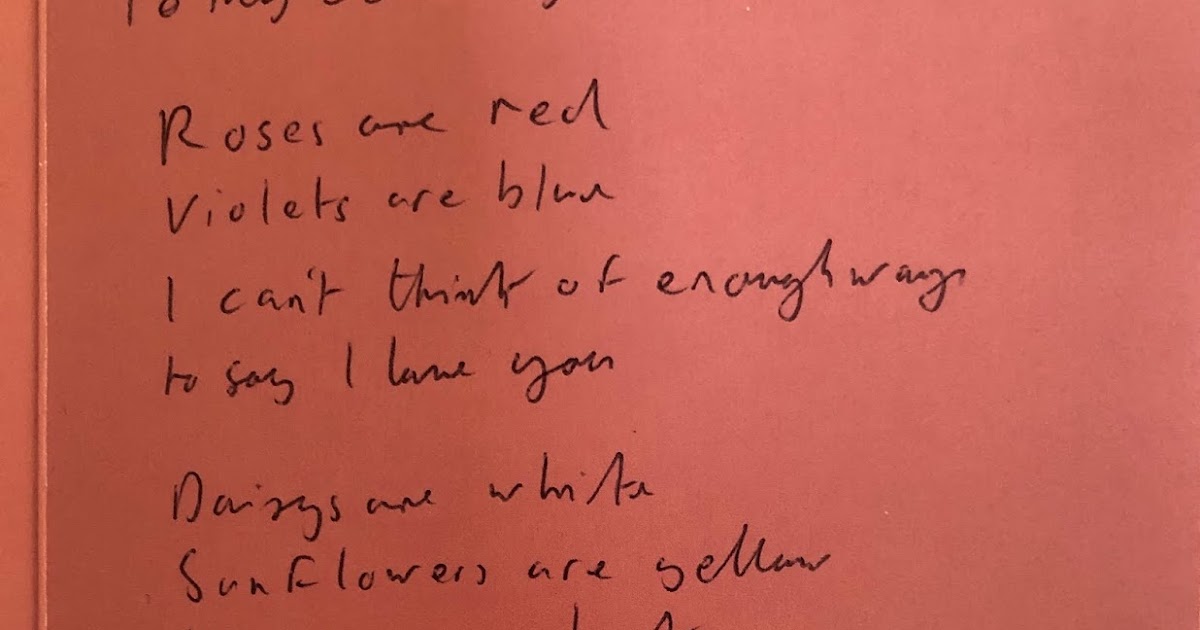 To my
Roses are red
Violets are blue
I can't think of enough ways
to say I love you
Daisys are white
Sunflowers are yellow